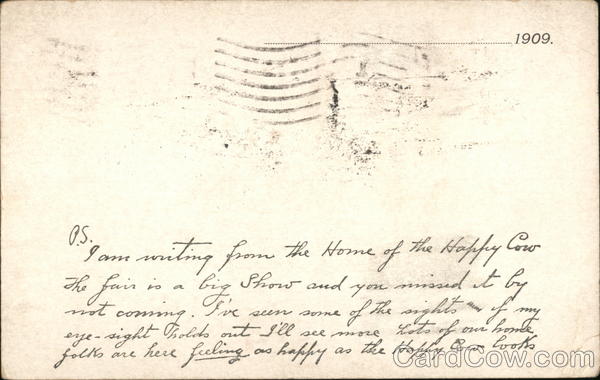 1909.
P.S.
I am writing from the Home of the Happy Cow
The fair is a big Show and you missed it by
not coming. I've seen some of the sights if my
eye-sight holds out I'll see more Lots of our home
folks are here feeling as happy as the Happy Cow looks
CardCow.com